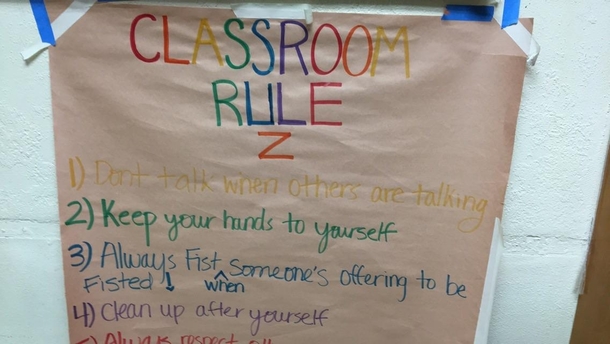 CLASSROOM
RULE
Z
1) Dont talk when others are talking
2) Keep your hands to yourself
3) Always Fist someone's offering to be
Fisted when
4) Clean up after yourself
5) Always respect